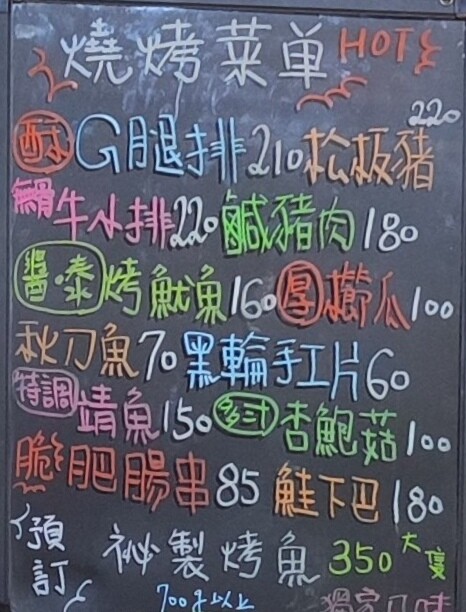 燒烤菜单 HOT
酥 G腿排 210 松板豬 220
無骨牛小排 220 鹹豬肉 180
醬·泰 烤魷魚 160 厚 櫛瓜 100
秋刀魚 70 黑輪手工片 60
特調 鯖魚 150 多汁 杏鮑菇 100
脆肥腸串 85 鮭下巴 180
預訂 祕製烤魚 350 大隻
700g以上 獨家口味